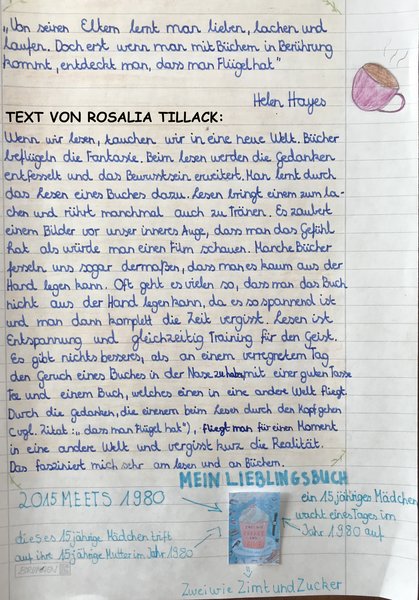 „Von seinen Eltern lernt man lieben, lachen und
laufen. Doch erst wenn man mit Büchern in Berührung
kommt, entdeckt man, dass man Flügel hat"
Helen Hayes
TEXT VON ROSALIA TILLACK:
Wenn wir lesen, tauchen wir in eine neue Welt. Bücher
beflügeln die Fantasie. Beim lesen werden die Gedanken
entfesselt und das Bewusstsein erweitert. Man lernt durch
das Lesen eines Buches dazu. Lesen bringt einem zum la-
chen und rührt manchmal auch zu Tränen. Es zaubert
einem Bilder vor unser inneres Auge, dass man das Gefühl
hat als würde man einen Film schauen. Manche Bücher
fesseln uns sogar dermaßen, dass man es kaum aus der
Hand legen kann. Oft geht es vielen so, dass man das Buch
nicht aus der Hand legen kann, da es so spannend ist
und man dann komplett die Zeit vergisst. Lesen ist
Entspannung und gleichzeitig Training für den Geist.
Es gibt nichts besseres, als an einem verregnetem Tag
den Geruch eines Buches in der Nase zu haben, mit einer guten Tasse
Tee und einem Buch, welches einen in eine andere Welt fliegt.
Durch die gedanken, die einenem beim Lesen durch den Kopf gehen
(vgl. Zitat: „dass man Flügel hat"), fliegt man für einen Moment
in eine andere Welt und vergisst kurz die Realität.
Das fasziniert mich sehr am lesen und an Büchern.
MEIN LIEBLINGSBUCH
2015 MEETS 1980
ein 15 jähriges Mädchen
wacht eines Tages im
Jahr 1980 auf
dieses 15 jährige Mädchen trift
auf ihre 15 jährige Mutter im Jahr 1980
ZWEI WIE
ZIMT
UND
Zwei wie Zimt und Zucker